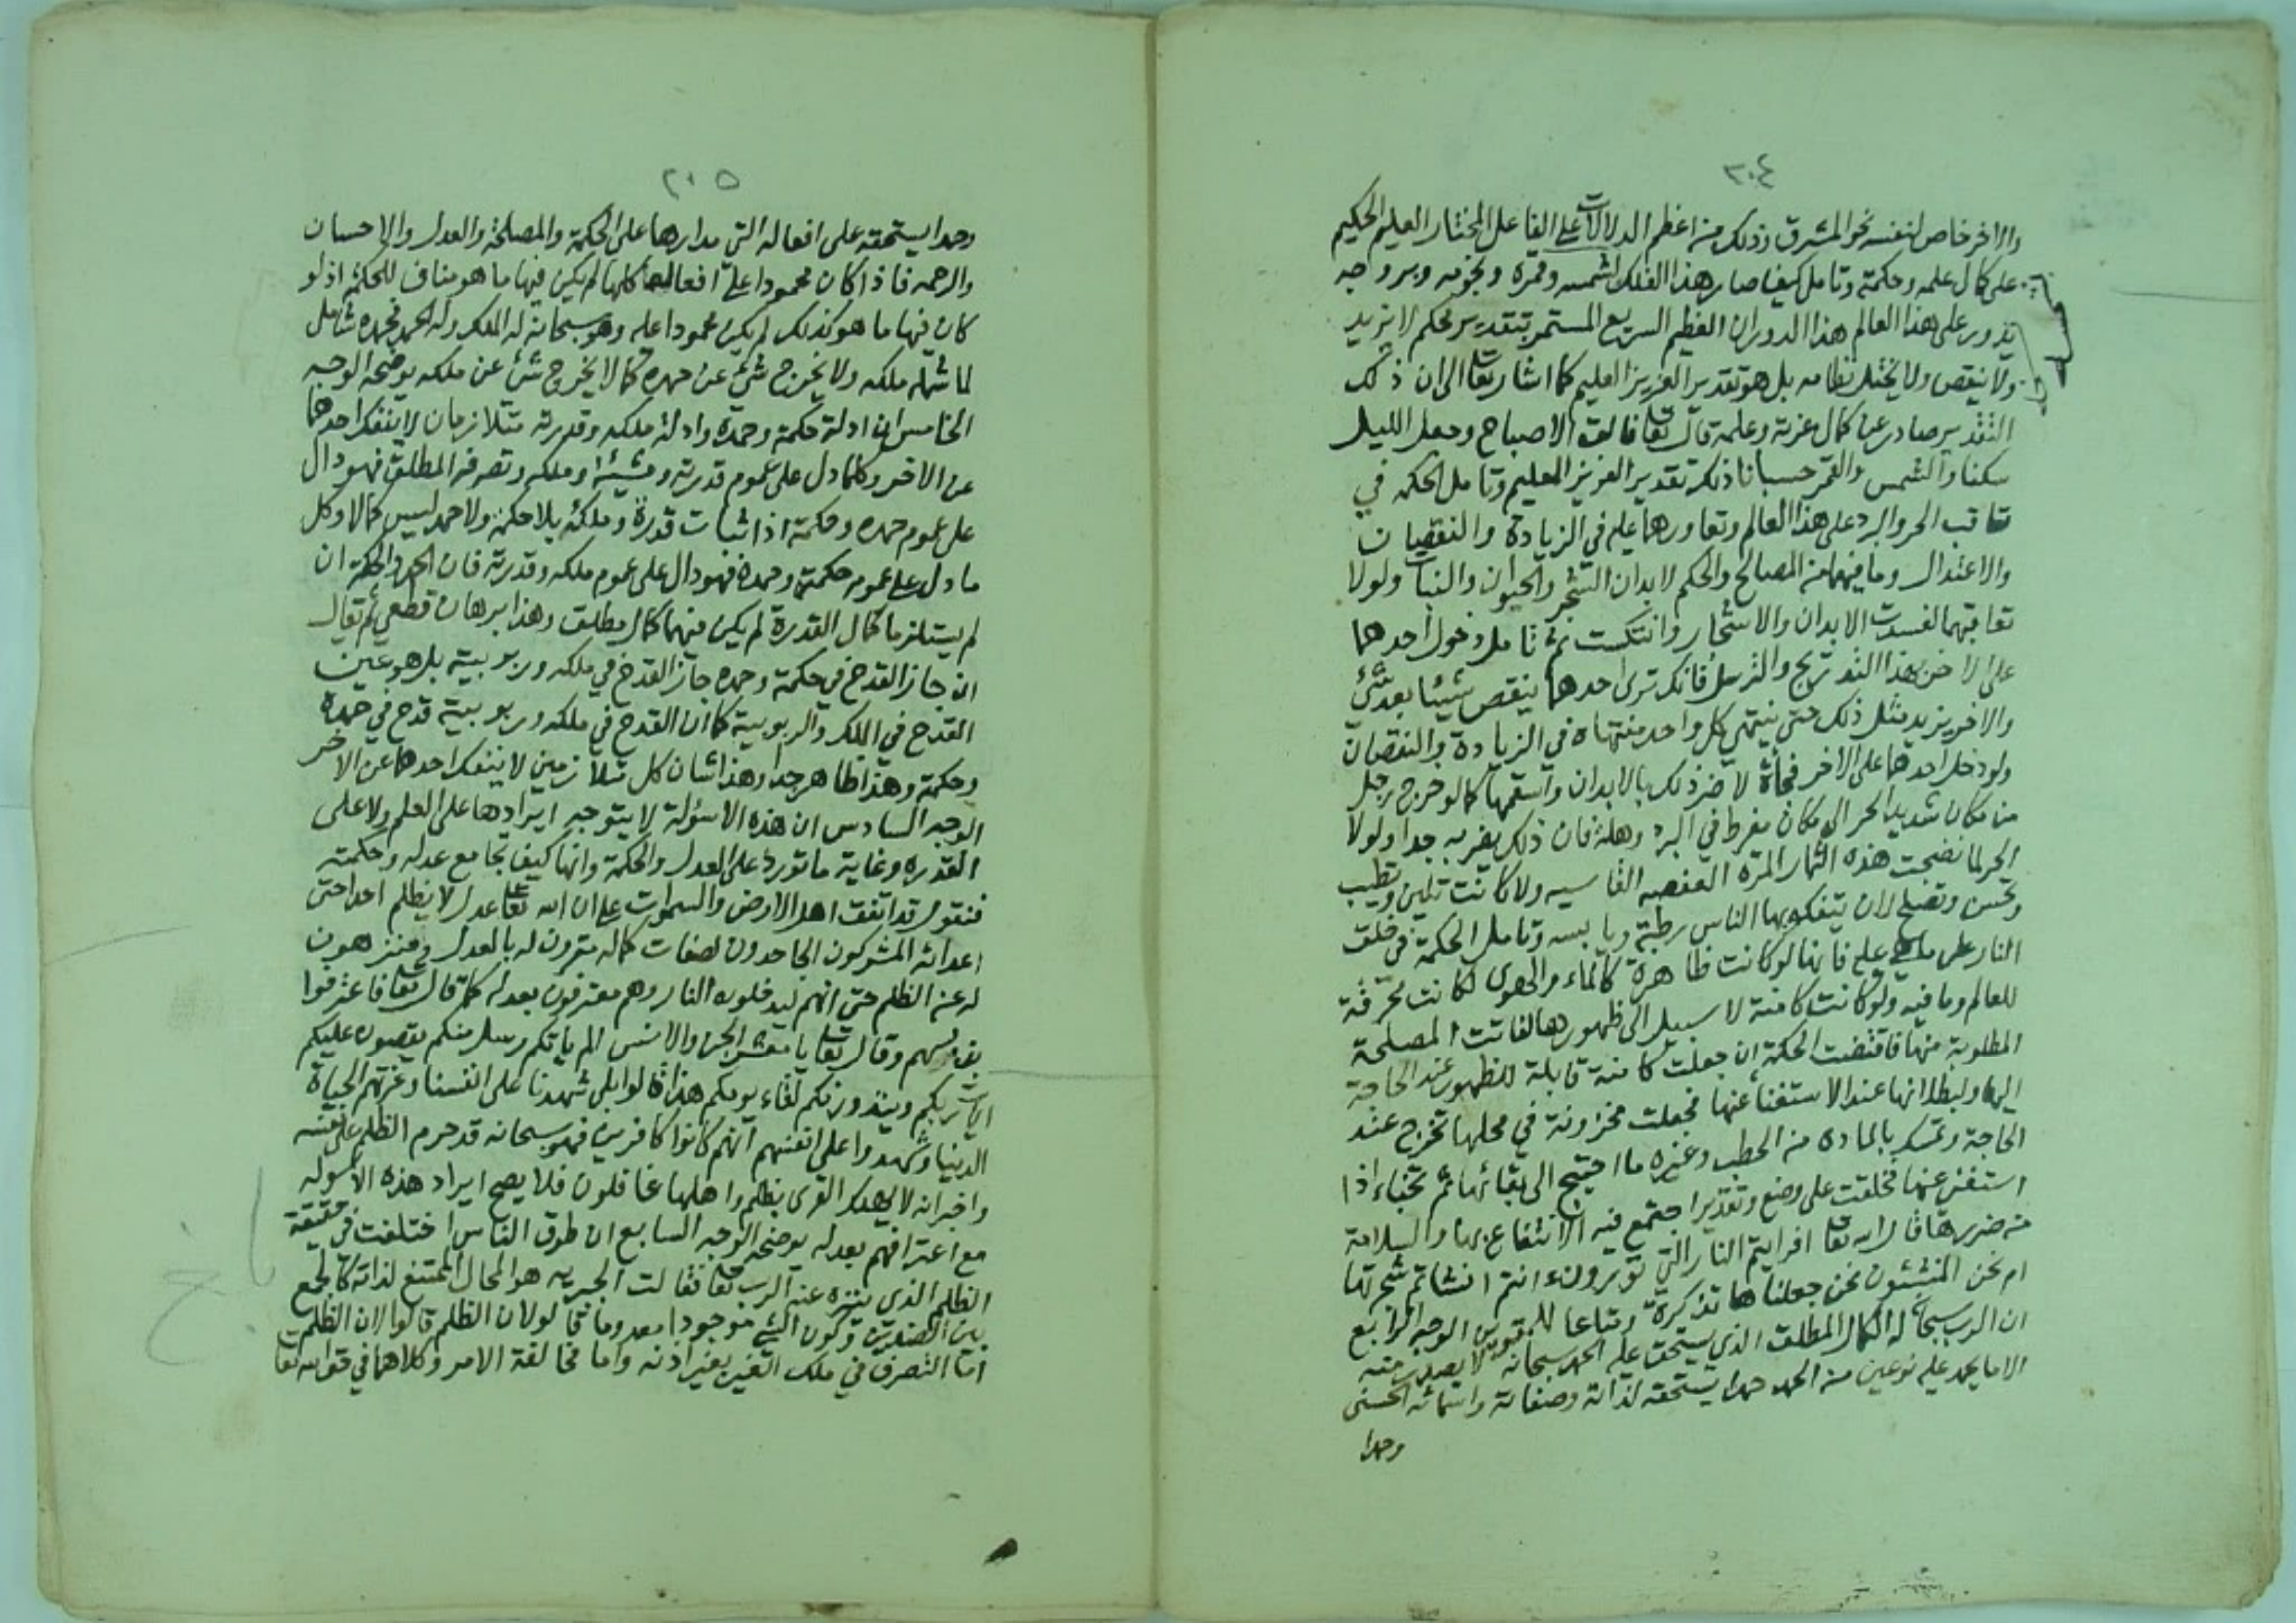 ٢٠٤
والاخر خاص لنفسه نحو المشرق وذلك من اعظم الدلالات على الفاعل المختار العليم الحكيم
على كمال علمه وحكمته وتامل كيف صار هذا الفلك لشمسه وقمره ونجومه وبروجه
تدور على هذا العالم هذا الدوران العظيم السريع المستمر بتقدير محكم لا يزيد
ولا ينقص ولا يختل نظامه بل هو تقدير العزيز العليم كما اشار تعالى الى ان ذلك
التقدير صادر عن كمال عزته وعلمه قال تعالى فالق الاصباح وجعل الليل
سكنا والشمس والقمر حسبانا ذلك تقدير العزيز العليم وتامل الحكمه في
تعاقب الحر والبرد على هذا العالم وتعاورهما عليه في الزيادة والنقصان
والاعتدال وما فيهما من المصالح والحكم لابدان الشجر والحيوان والنبات ولولا
تعاقبهما لفسدت الابدان والاشجار وانتكست ثم تامل دخول احدهما
على الاخر بهذا التدريج والترسل فانك ترى احدهما ينقص شيئا بعد شئ
والاخر يزيد مثل ذلك حتى ينتهي كل واحد منتهاه في الزيادة والنقصان
ولو دخل احدهما على الاخر فجأة لاضر ذلك بالابدان واسقمها كما لو خرج رجل
من مكان شديد الحر الى مكان مفرط في البرد وهلة فان ذلك يضر به جدا ولولا
الحر لما نضجت هذه الثمار المرة العفصه القاسيه ولا كانت تلين وتطيب
وتحسن وتصلح لان يتفكه بها الناس رطبة ويابسه وتامل الحكمة في خلق
النار على ما هي عليه فانها لو كانت ظاهرة كالماء والهوى لكانت محرقة
للعالم وما فيه ولو كانت كامنة لا سبيل الى ظهورها لفاتت المصلحة
المطلوبة منها فاقتضت الحكمة ان جعلت كامنة قابلة للظهور عند الحاجة
اليها ولبطلانها عند الاستغنا عنها فجعلت مخزونة في محلها تخرج عند
الحاجة وتمسك بالمادة من الحطب وغيره ما احتيج الى بقائها ثم تخبأ اذا
استغنى عنها فخلقت على وضع وتقدير اجتمع فيه الانتفاع بها والسلامة
من ضررها قال الله تعالى افرايتم النار التي تورون ءانتم انشاتم شجرتها
ام نحن المنشئون نحن جعلناها تذكرة ومتاعا للمقوين الوجه الرابع
ان الرب سبحانه له الكمال المطلق الذي يستحق عليه الحمد سبحانه لا يصدر منه
الا ما يحمد عليه نوعين من الحمد حمدا يستحقه لذاته وصفاته واسمائه الحسنى
وحمدا
٢٠٥
وحمدا يستحقه على افعاله التي مدارها على الحكمة والمصلحة والعدل والاحسان
والرحمه فاذا كان محمودا على افعاله كلها لم يكن فيها ما هو مناف للحكمة اذ لو
كان فيها ما هو كذلك لم يكن محمودا عليه وهو سبحانه له الملك وله الحمد فحمده شامل
لما شمله ملكه ولا يخرج شئ عن حمده كما لا يخرج شئ عن ملكه يوضحه الوجه
الخامس ان ادلة حكمته وحمده وادلة ملكه وقدرته متلازمان لا ينفك احدهما
عن الاخر وكلما دل على عموم قدرته ومشيئته وملكه وتصرفه المطلق فهو دال
على عموم حمده وحكمته اذ اثبات قدرة وملك بلا حكمة ولا حمد ليس كمالا وكل
ما دل على عموم حكمته وحمده فهو دال على عموم ملكه وقدرته فان الحمد والحكمة ان
لم يستلزما كمال القدرة لم يكن فيهما كمال مطلق وهذا برهان قطعي ثم تقال
ان جاز القدح في حكمته وحمده جاز القدح في ملكه وربوبيته بل هو عين
القدح في الملك والربوبية كما ان القدح في ملكه وربوبيته قدح في حمده
وحكمته وهذا ظاهر جدا وهذا شان كل متلازمين لا ينفك احدهما عن الاخر
الوجه السادس ان هذه الاسئولة لا يتوجه ايرادها على العلم ولا على
القدره وغاية ما تورد على العدل والحكمة وانها كيف تجامع عدله وحكمته
فنقول قد اتفق اهل الارض والسموات على ان الله تعالى عدل لا يظلم احدا حتى
اعدائه المشركون الجاحدون لصفات كماله مقرون له بالعدل ومنزهون
له عن الظلم حتى انهم ليدخلون النار وهم معترفون بعدله كما قال تعالى فاعترفوا
بذنبهم وقال تعالى يا معشر الجن والانس الم ياتكم رسل منكم يقصون عليكم
ايات ربكم وينذرونكم لقاء يومكم هذا قالوا بلى شهدنا على انفسنا وغرتهم الحياة
الدنيا وشهدوا على انفسهم انهم كانوا كافرين فهو سبحانه قد حرم الظلم على نفسه
واخبر انه لا يهلك القرى بظلم واهلها غافلون فلا يصح ايراد هذه الاسوله
مع اعترافهم بعدله يوضحه الوجه السابع ان طرق الناس اختلفت في حقيقة
الظلم الذي ينزه عنه الرب تعالى فقالت الجبريه هو المحال الممتنع لذاته كالجمع
بين الضدين وكون الشئ موجودا معدوما قالوا لان الظلم
اما التصرف في ملك الغير بغير اذنه واما مخالفة الامر وكلاهما في حق الله تعالى